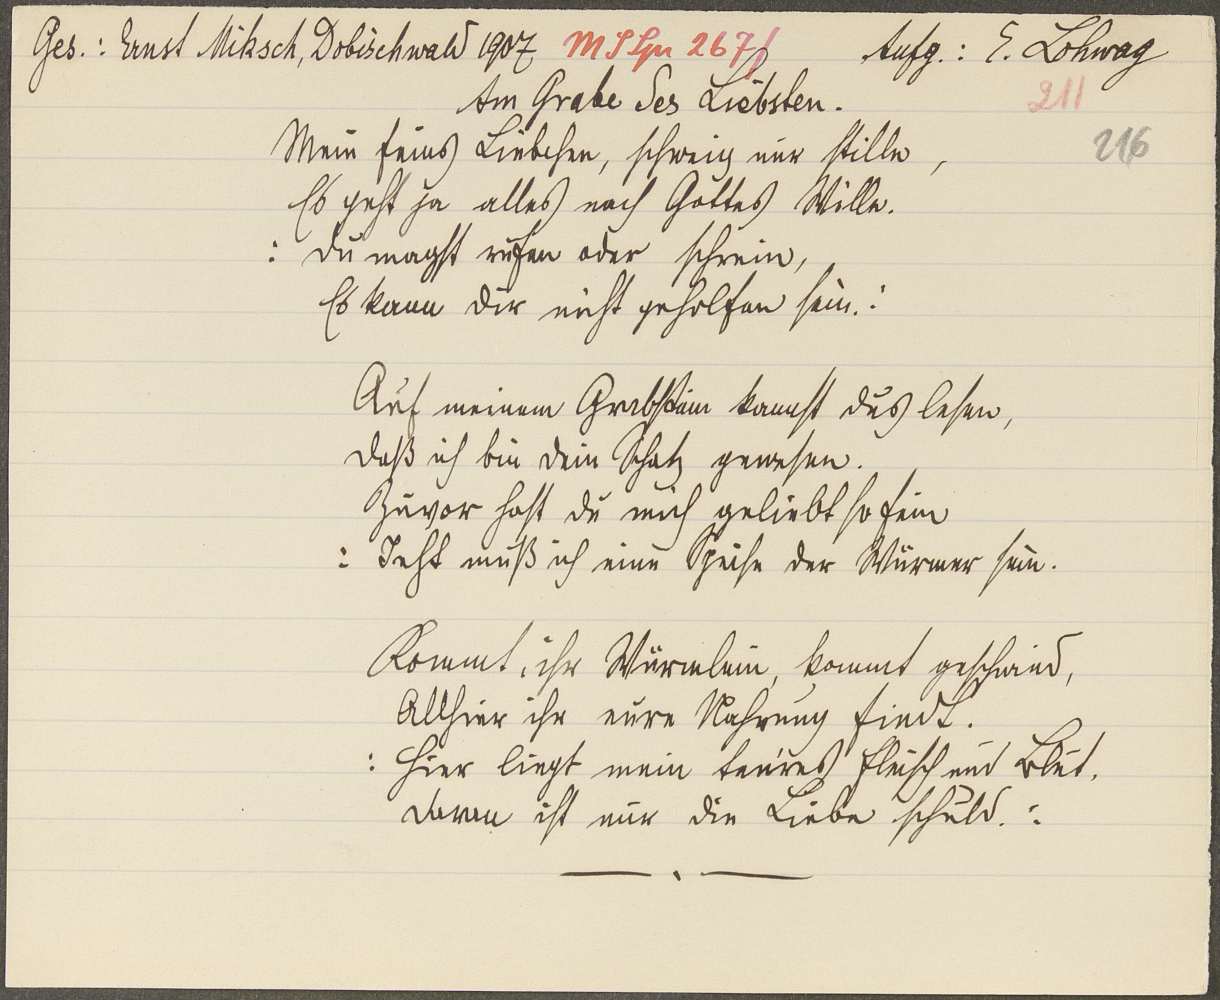 Ges.: Ernst Miksch, Dobischwald 1907 Aufg.: E. Lohwag
Am Grabe des Liebsten.
211
216
Mein feins Liebchen, schweig nur stille,
Es geht ja alles nach Gottes Wille.
: du magst rufen oder schrein,
Es kann dir nicht geholfen sein. :
Auf meinem Grabstein kannst dus lesen,
daß ich bin dein Schatz gewesen.
Zuvor hast du mich geliebt so fein
: Jetzt muß ich eine Speise der Würmer sein.
Kommt, ihr Würmlein, kommt geschwind,
Allhier ihr eure Nahrung findt.
: Hier liegt mein teures Fleisch und Blut,
daran ist nur die Liebe schuld. :